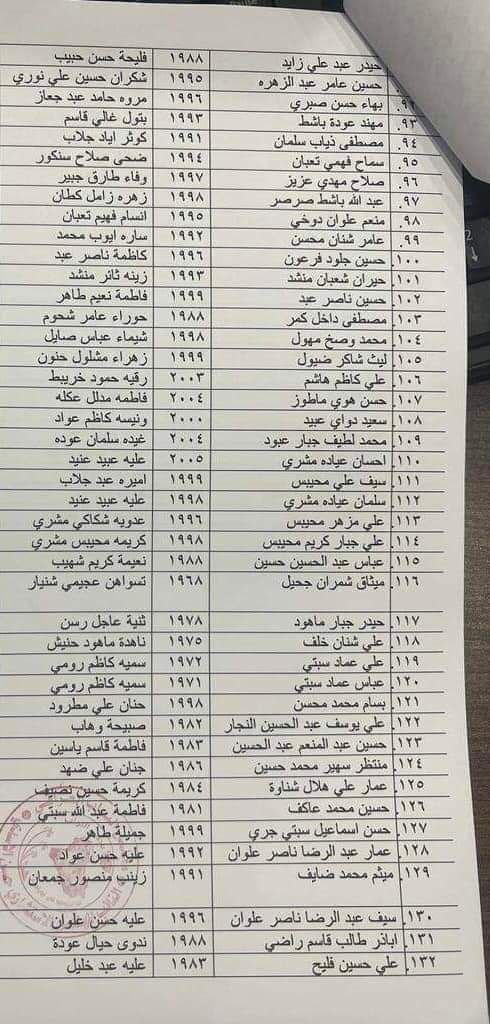 حيدر عبد علي زايد ١٩٨٨ فليحة حسن حبيب
حسين عامر عبد الزهره ١٩٩٥ شكران حسين علي نوري
٩٢. بهاء حسن صبري ١٩٩٦ مروه حامد عبد جعاز
٩٣. مهند عودة باشط ١٩٩٣ بتول غالي قاسم
٩٤. مصطفى ذياب سلمان ١٩٩١ كوثر اياد جلاب
٩٥. سماح فهمي تعبان ١٩٩٤ ضحى صلاح سنكور
٩٦. صلاح مهدي عزيز ١٩٩٧ وفاء طارق جبير
٩٧. عبد الله باشط صرصر ١٩٩٨ زهره زامل كطان
٩٨. منعم علوان دوخي ١٩٩٥ انسام فهيم تعبان
٩٩. عامر شنان محسن ١٩٩٢ ساره ايوب محمد
١٠٠. حسين جلود فرعون ١٩٩٦ كاظمة ناصر عبد
١٠١. حيران شعبان منشد ١٩٩٣ زينه ثائر منشد
١٠٢. حسين ناصر عبد ١٩٩٩ فاطمة نعيم طاهر
١٠٣. مصطفى داخل كمر ١٩٨٨ حوراء عامر شحوم
١٠٤. محمد وصخ مهول ١٩٩٨ شيماء عباس صايل
١٠٥. ليث شاكر ضيول ١٩٩٩ زهراء مشلول حنون
١٠٦. علي كاظم هاشم ٢٠٠٣ رقيه حمود خريبط
١٠٧. حسن هوي ماطوز ٢٠٠٤ فاطمه مدلل عكله
١٠٨. سعيد دواي عبيد ٢٠٠٠ ونيسه كاظم عواد
١٠٩. محمد لطيف جبار عبود ٢٠٠٤ غيده سلمان عوده
١١٠. احسان عياده مشري ٢٠٠٥ عليه عبيد عنيد
١١١. سيف علي محيبس ١٩٩٩ اميره عبد جلاب
١١٢. سلمان عياده مشري ١٩٩٨ عليه عبيد عنيد
١١٣. علي مزهر محيبس ١٩٩٦ عدويه شكاكي مشري
١١٤. علي جبار كريم محيبس ١٩٩٨ كريمه محيبس مشري
١١٥. عباس عبد الحسين حسين ١٩٨٨ نعيمة كريم شهيب
١١٦. ميثاق شمران جحيل ١٩٦٨ تسواهن عجيمي شنيار
١١٧. حيدر جبار ماهود ١٩٧٨ ثنية عاجل رسن
١١٨. علي شنان خلف ١٩٧٥ ناهدة ماهود حنيش
١١٩. علي عماد سبتي ١٩٧٢ سميه كاظم رومي
١٢٠. عباس عماد سبتي ١٩٧١ سميه كاظم رومي
١٢١. بسام محمد محسن ١٩٩٨ حنان علي مطرود
١٢٢. علي يوسف عبد الحسين النجار ١٩٨٢ صبيحة وهاب
١٢٣. حسين عبد المنعم عبد الحسين ١٩٨٣ فاطمة قاسم ياسين
١٢٤. منتظر سهير محمد حسين ١٩٨٦ جنان علي ضهد
١٢٥. عمار علي هلال شناوة ١٩٨٤ كريمة حسين نصيف
١٢٦. حسين محمد عاكف ١٩٨١ فاطمة عبد الله سبتي
١٢٧. حسن اسماعيل سبتي جري ١٩٩٩ جميلة طاهر
١٢٨. عمار عبد الرضا ناصر علوان ١٩٩٢ عليه حسن عواد
١٢٩. ميثم محمد ضايف ١٩٩١ زينب منصور جمعان
١٣٠. سيف عبد الرضا ناصر علوان ١٩٩٦ عليه حسن علوان
١٣١. اباذر طالب قاسم راضي ١٩٨٨ ندوى حيال عودة
١٣٢. علي حسين فليح ١٩٨٣ عليه عبد خليل